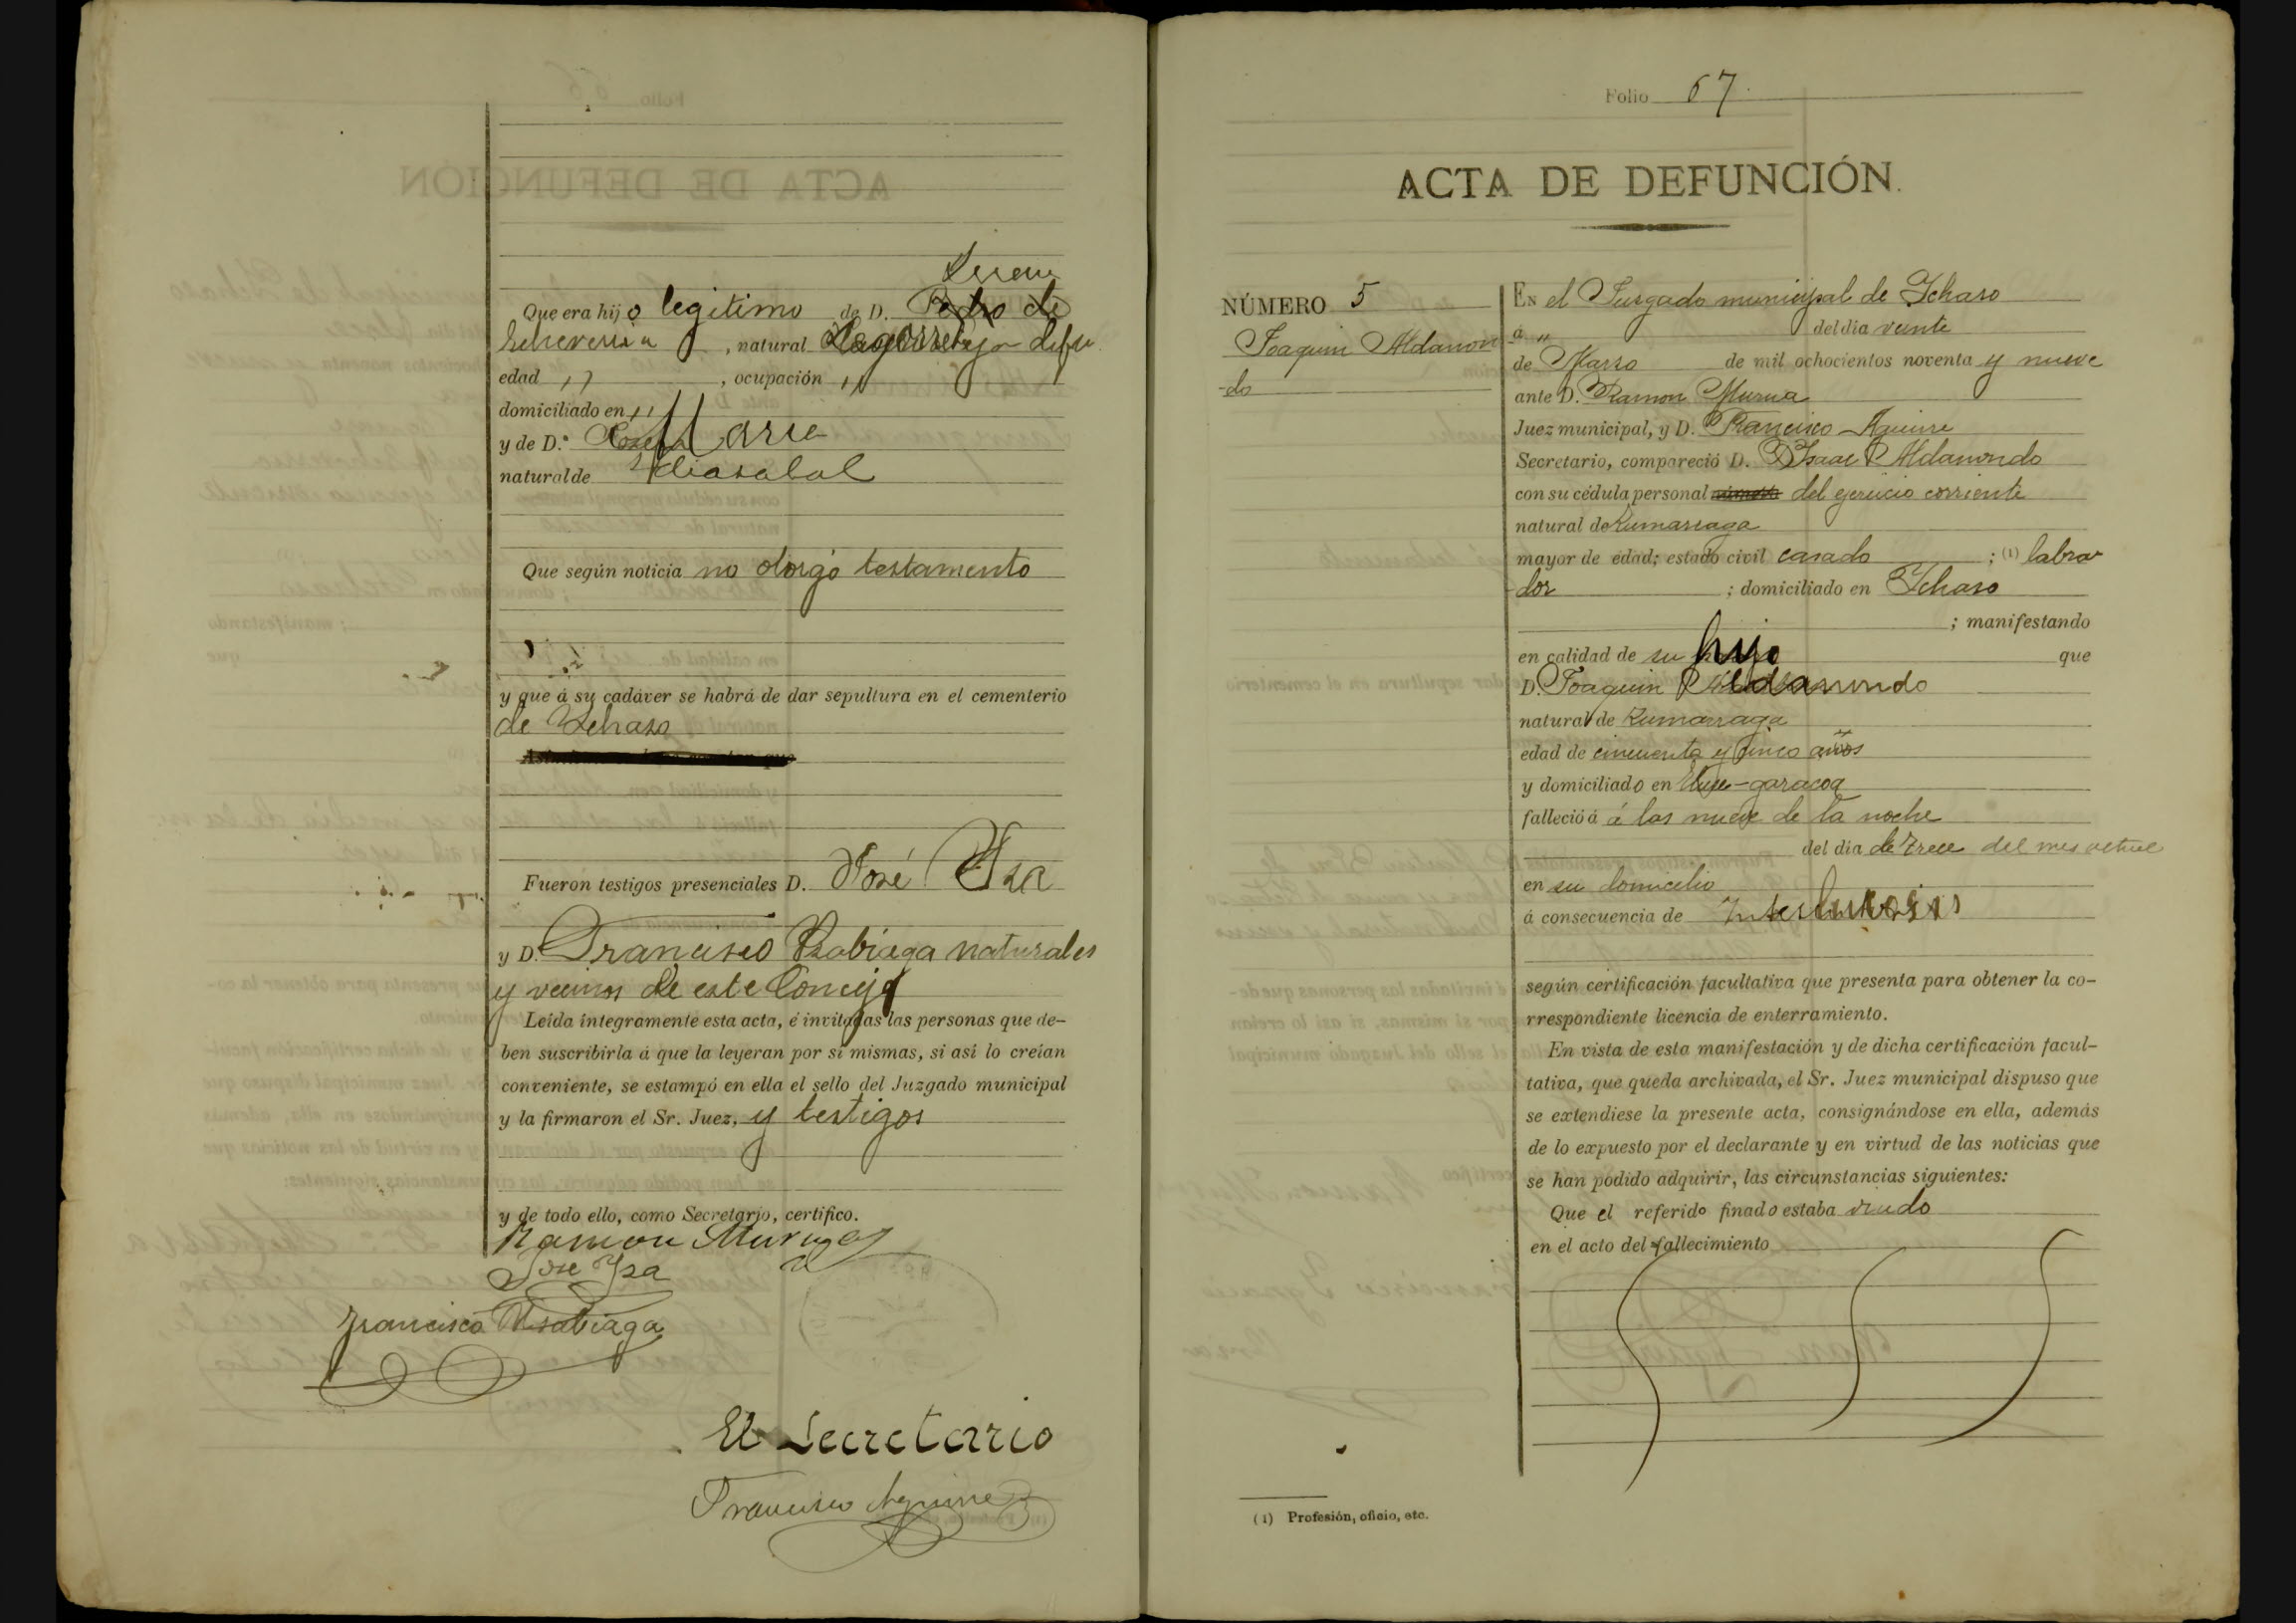 Que era hijo legitimo de D. Pedro de
Echeverria, natural Lagorreta difu
edad ,, , ocupación ,,
domiciliado en ,,
y de D.ª Josefa Arse
natural de Idiasabal
Que según noticia no otorgó testamento
y que á su cadáver se habrá de dar sepultura en el cementerio
de Ychaso
Fueron testigos presenciales D. José Ysa
y D. Francisco Usabiaga naturales
y vecinos de este Concejo
Leída íntegramente esta acta, é invitadas las personas que de-
ben suscribirla á que la leyeran por sí mismas, si así lo creían
conveniente, se estampó en ella el sello del Juzgado municipal
y la firmaron el Sr. Juez, y testigos
y de todo ello, como Secretario, certifico.
Ramon Murua
Jose Ysa
Francisco Usabiaga
El Secretario
Francisco Aguirre
Folio 67
ACTA DE DEFUNCIÓN.
NÚMERO 5
Joaquin Aldamon
-do
En el Jusgado municipal de Ychaso
á ,, del dia veinte
de Marso de mil ochocientos noventa y nueve
ante D. Ramon Murua
Juez municipal, y D. Francisco Aguirre
Secretario, compareció D. Isaac Aldamondo
con su cédula personal número del ejercicio corriente
natural de Zumarraga
mayor de edad; estado civil casado ; (1) labra
dor ; domiciliado en Ychaso
; manifestando
en calidad de su hijo que
D. Joaquin Aldamondo
natural de Zumarraga
edad de cincuenta y cinco años
y domiciliado en -garacoa
falleció á á las nueve de la noche
del dia de trece del mes actual
en su domicilio
á consecuencia de
según certificación facultativa que presenta para obtener la co-
rrespondiente licencia de enterramiento.
En vista de esta manifestación y de dicha certificación facul-
tativa, que queda archivada, el Sr. Juez municipal dispuso que
se extendiese la presente acta, consignándose en ella, además
de lo expuesto por el declarante y en virtud de las noticias que
se han podido adquirir, las circunstancias siguientes:
Que el referido finado estaba viudo
en el acto del fallecimiento
(1) Profesión, oficio, etc.